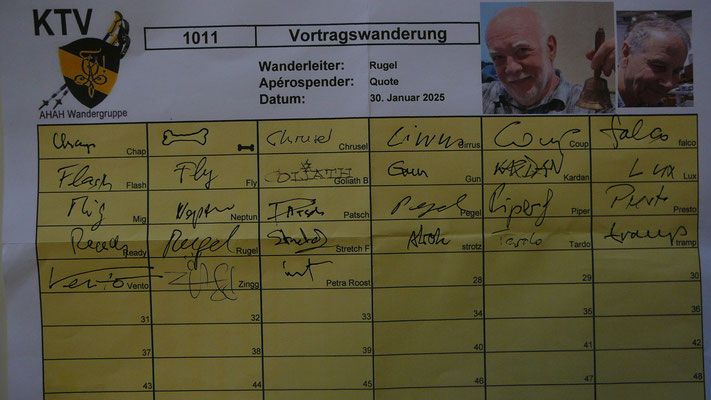 KTV
AHAH Wandergruppe
1011 Vortragswanderung
Wanderleiter: Rugel
Apérospender: Quote
Datum: 30. Januar 2025
Chap Chrusel Cirrus Coup falco
Chap Chrusel Cirrus Coup falco
Flash Fly GOLIATH Gun KARDAN Lux
Flash Fly Goliath B Gun Kardan Lux
Mig Neptun Patsch Pegel Piper Presto
Mig Neptun Patsch Pegel Piper Presto
Ready Rugel Stretch Tardo tramp
Ready Rugel Stretch F strotz Tardo tramp
Vento Zingg
Vento Zingg Petra Roost 28 29 30
31 32 33 34 35 36
37 38 39 40 41 42
43 44 45 46 47 48